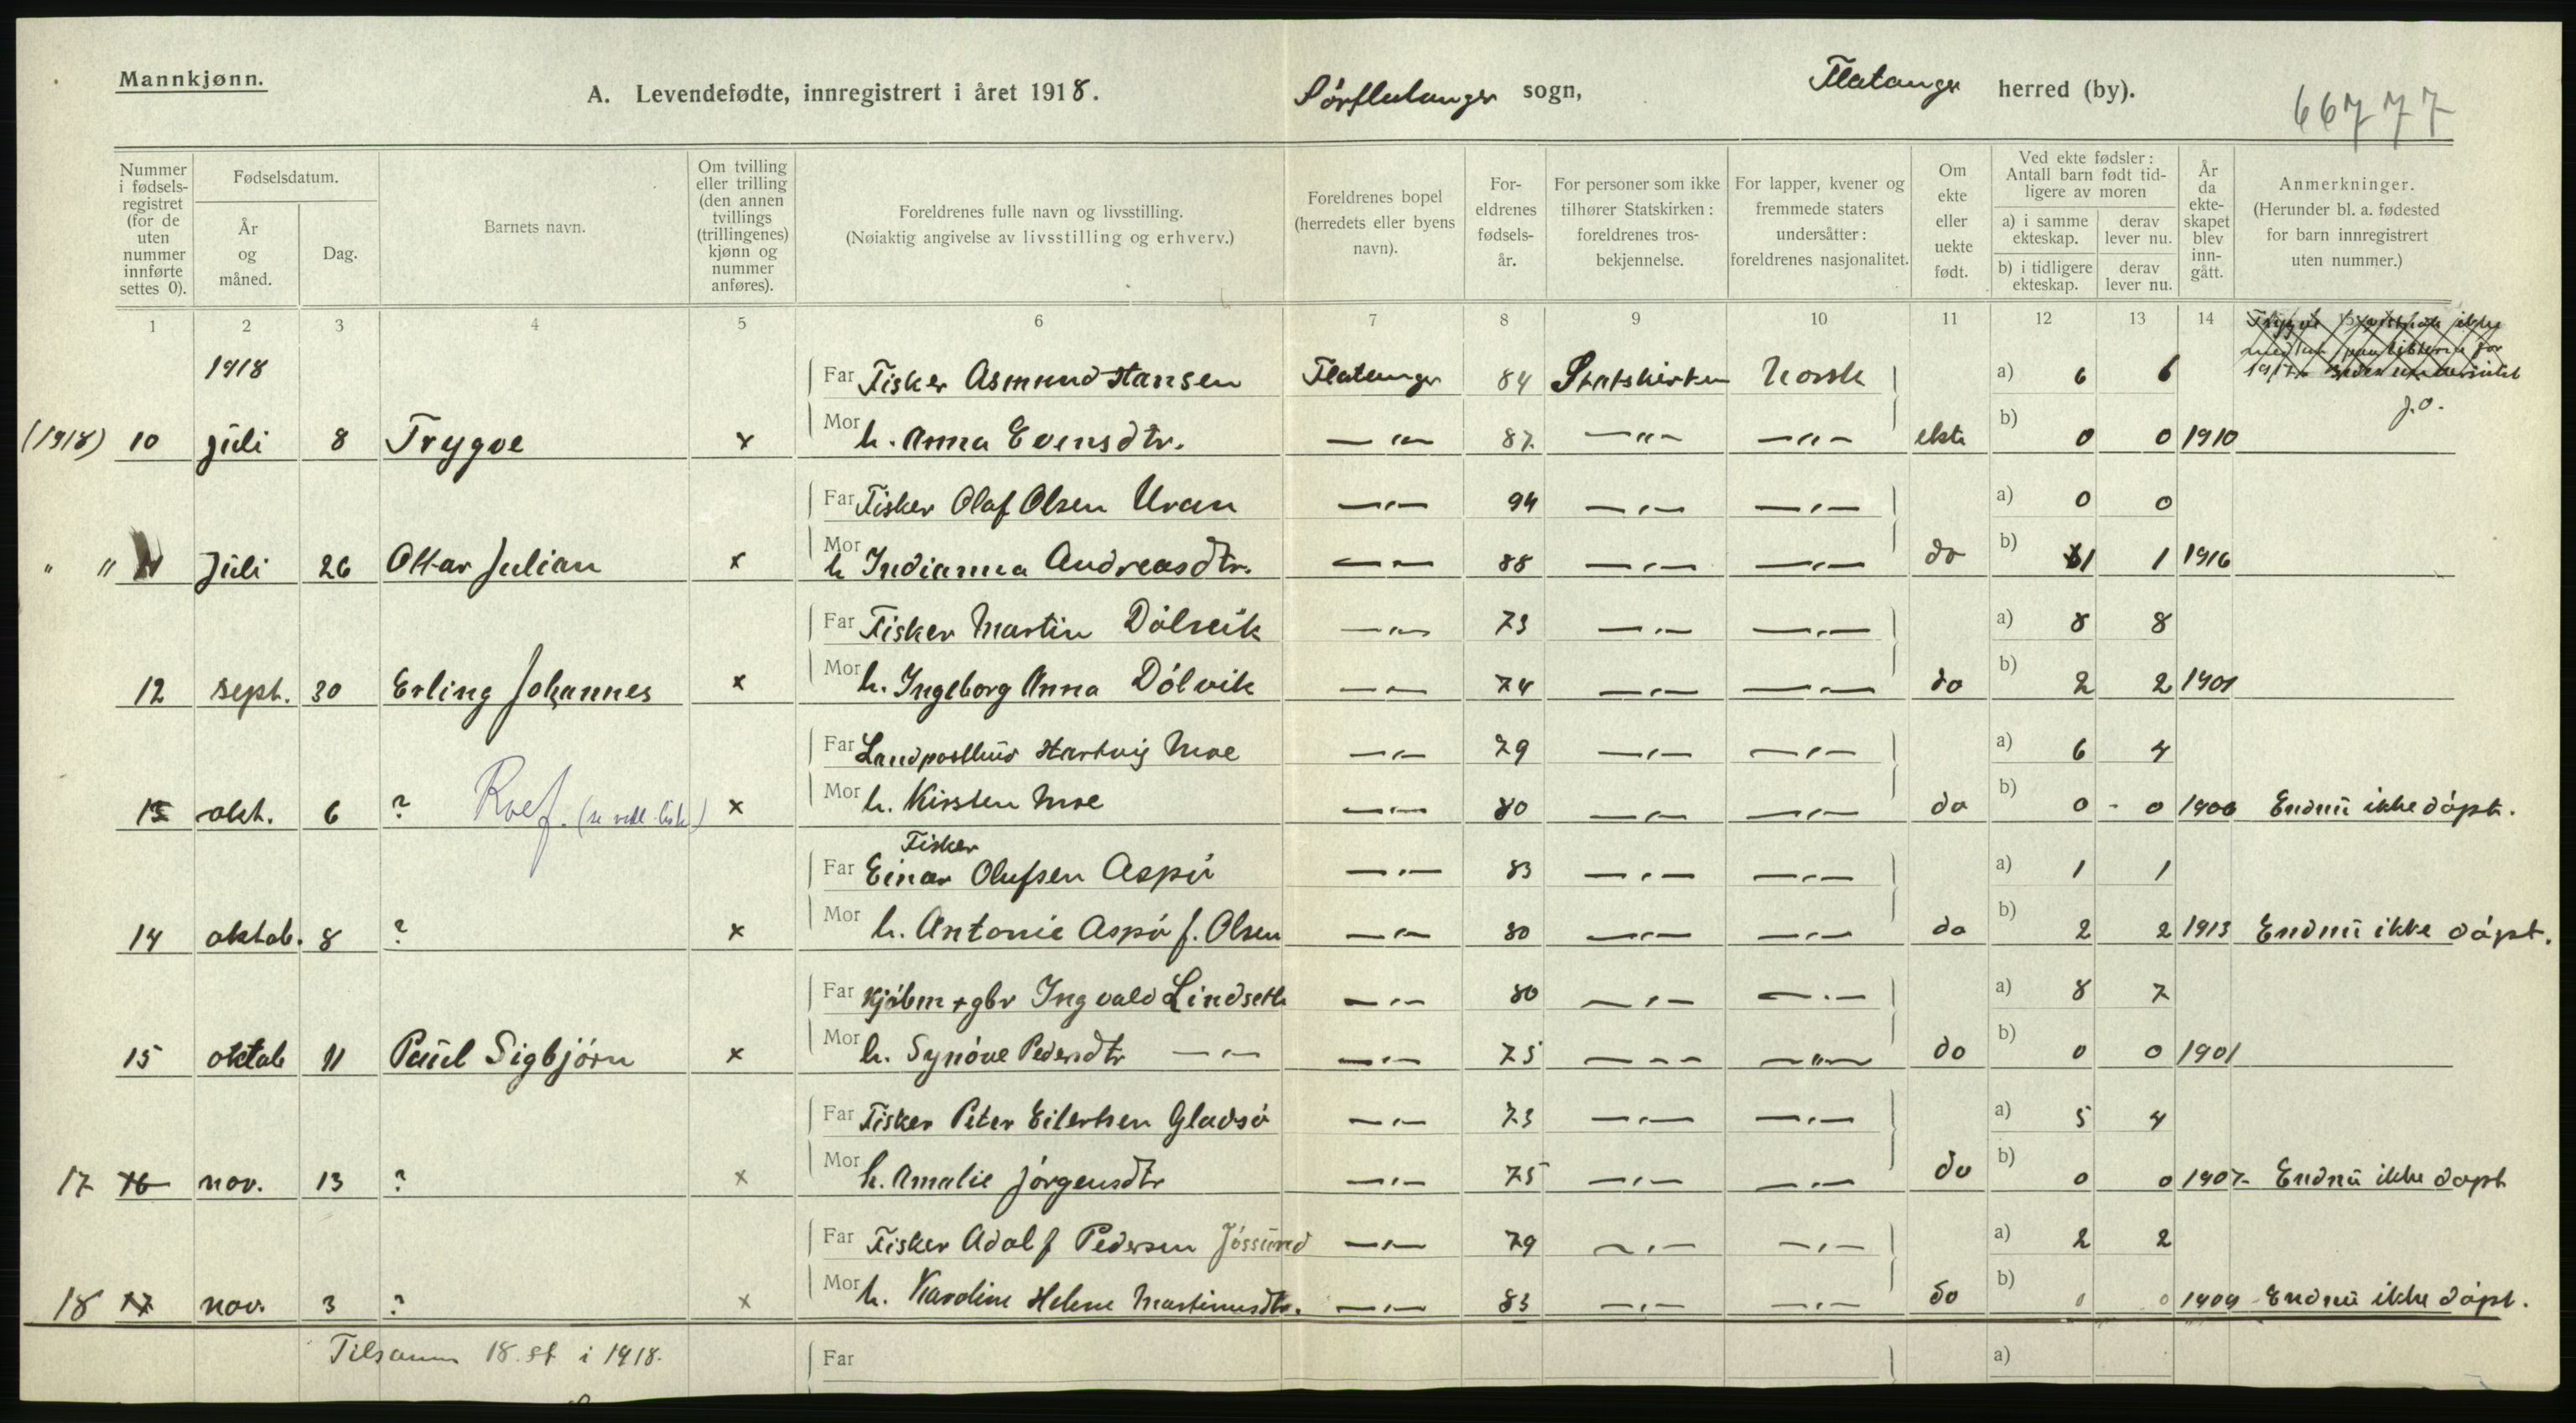 Mannkjønn.
A. Levendefødte, innregistrert i året 1918. Sørflatanger sogn, Flatanger herred (by).
66777
Nummer i fødsels-registret (for de uten nummer innførte settes 0).
Fødselsdatum.
År og måned.
Dag.
Barnets navn.
Om tvilling eller trilling (den annen tvillings (trillingenes) kjønn og nummer anføres).
Foreldrenes fulle navn og livsstilling.
(Nøiaktig angivelse av livsstilling og erhverv.)
Foreldrenes bopel (herredets eller byens navn).
For-eldrenes fødsels-år.
For personer som ikke tilhører Statskirken: foreldrenes tros-bekjennelse.
For lapper, kvener og fremmede staters undersåtter: foreldrenes nasjonalitet.
Om ekte eller uekte født.
Ved ekte fødsler: Antall barn født tid-ligere av moren
a) i samme ekteskap. derav lever nu.
b) i tidligere ekteskap. derav lever nu.
År da ekte-skapet blev inn-gått.
Anmerkninger.
(Herunder bl. a. fødested for barn innregistrert uten nummer.)
1 2 3 4 5 6 7 8 9 10 11 12 13 14
1918 Far Fisker Asmund Hansen Flatanger 84 Statskirken Norsk a) 6 6
J.O.
(1918) 10 juli 8 Trygve x Mor h. Anna Evensdtr. —"— 87 —"— —"— ekte b) 0 0 1910
Far Fisker Olaf Olsen Uran —"— 94 —"— —"— a) 0 0
" " 11 juli 26 Ottar Julian x Mor h Indianna Andreasdtr. —"— 88 —"— —"— do b) 1 1 1916
Far Fisker Martin Dølvik —"— 73 —"— —"— a) 8 8
12 sept. 30 Erling Johannes x Mor h. Ingeborg Anna Dølvik —"— 74 —"— —"— do b) 2 2 1901
Far Landpostbud Hartvig Moe —"— 79 —"— —"— a) 6 4
13 okt. 6 ? Rolf. (se vedl. liste) x Mor h. Kirsten Moe —"— 80 —"— —"— do b) 0 - 0 1906 Endnu ikke døpt.
Fisker
Far Einar Olufsen Aspø —"— 83 —"— —"— a) 1 1
14 oktob. 8 ? x Mor h. Antonie Aspø f. Olsen —"— 80 —"— —"— do b) 2 2 1913 Endnu ikke døpt.
Far Kjøbm + gbr Ingvald Lindseth —"— 80 —"— —"— a) 8 7
15 oktob 11 Paul Sigbjørn x Mor h. Synøve Pedersdtr —"— —"— 75 —"— —"— do b) 0 0 1901
Far Fisker Peter Eilertsen Gladsø —"— 73 —"— —"— a) 5 4
17 16 nov. 13 ? x Mor h. Amalie Jørgensdtr —"— 75 —"— —"— do b) 0 0 1907 Endnu ikke døpt
Far Fisker Adolf Pedersen Jøssund —"— 79 —"— —"— a) 2 2
18 17 nov. 3 ? x Mor h. Karoline Helene Martinusdtr. —"— 83 —"— —"— do b) 0 0 1909 Endnu ikke døpt.
Tilsamm 18. st i 1918.
Far a)